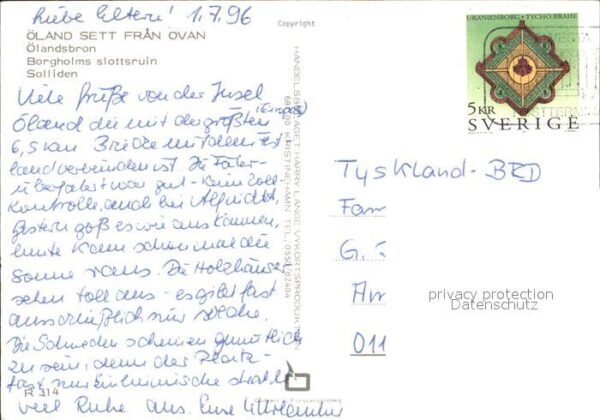 Liebe Eltern! 1.7.96
ÖLAND SETT FRÅN OVAN
Ölandsbron
Borgholms slottsruin
Solliden
Viele Grüße von der Insel
Öland die mit der größten (Europas)
6,5 km Brücke mit dem Fest
land verbunden ist. Die Fähr-
überfahrt war gut - kein Zoll-
kontrolle, auch bei Alfi nicht,
gestern goß es wie aus Kannen,
heute kam schon mal die
Sonne raus. Die Holzhäuser
sehen toll aus - es gibt fast
ausschließlich nur solche.
Die Schweden scheinen gemütlich
zu sein, denn der Platz-
fast nur Einheimische strahlt
viel Ruhe aus. Eure
R 314
Copyright
HANDELSBOLAGET HARRY LANGE VYKORTSPRODUKTION
KRISTINEHAMN TEL.
URANIENBORG · TYCHO BRAHE
5 KR
SVERIGE
Tyskland - BRD
Fam
G.
Am
011
privacy protection
Datenschutz